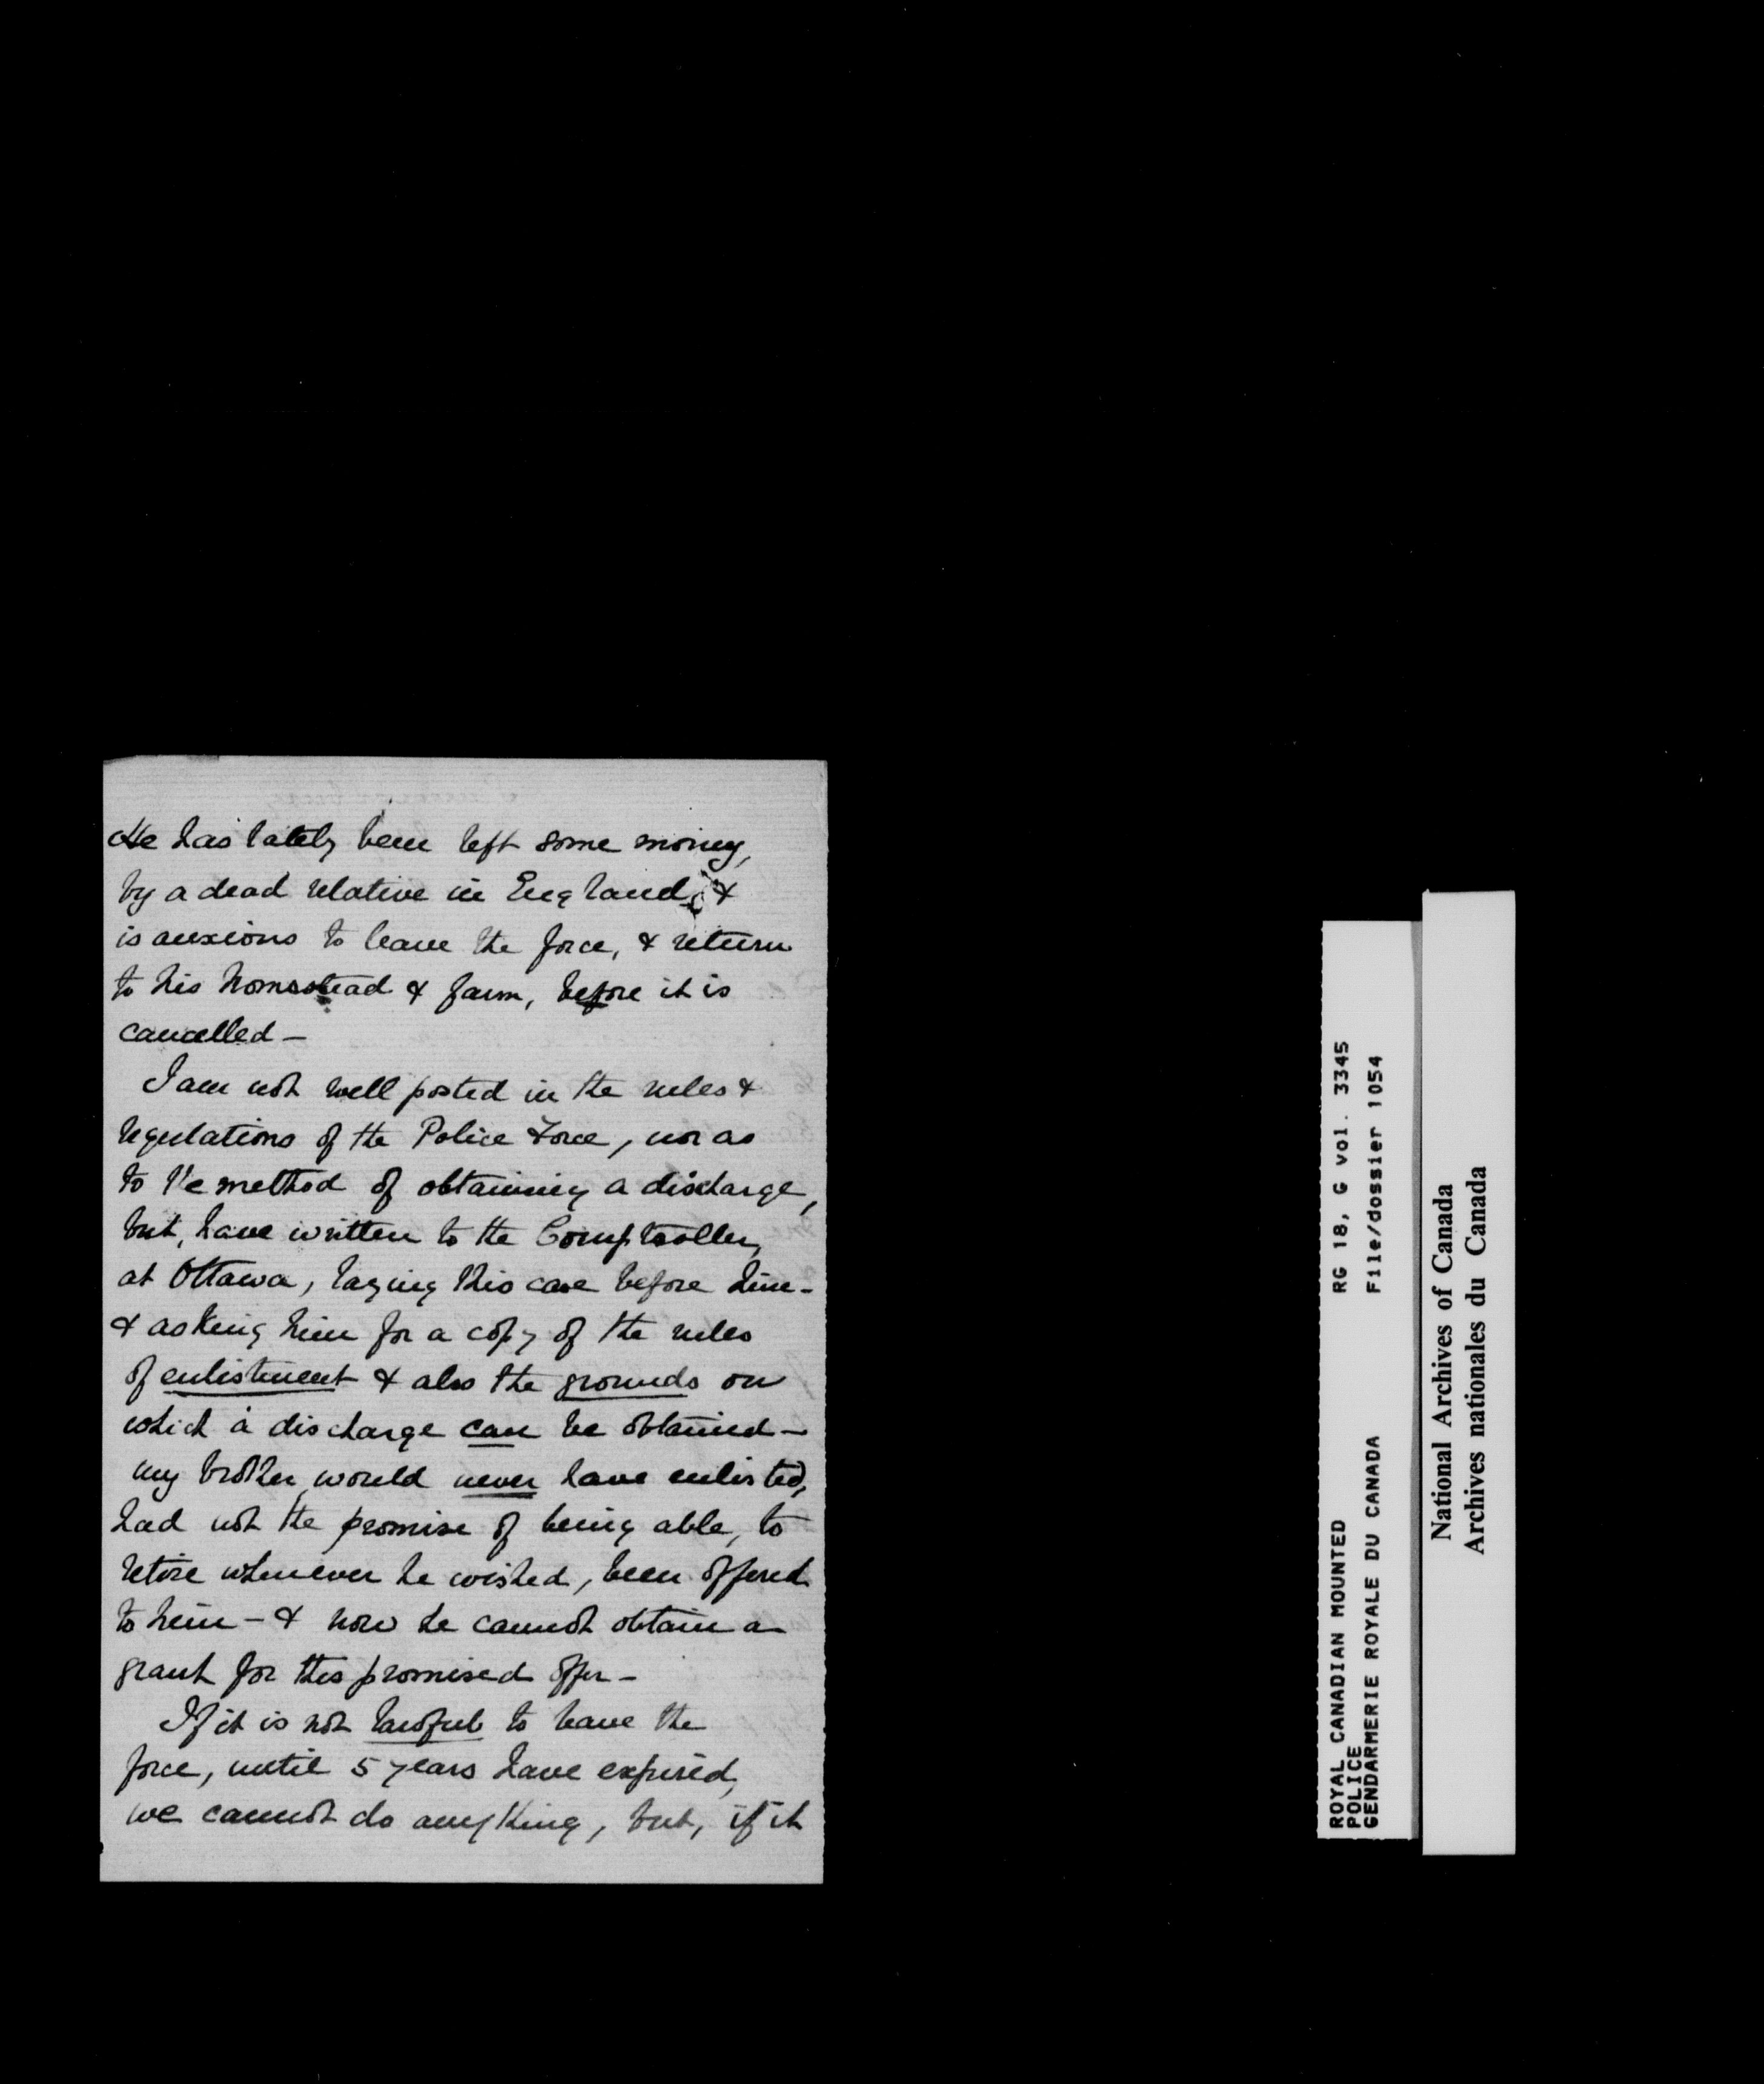 He has lately been left some money,
by a dead relative in England, &
is anxious to leave the force, & return
to his homestead & farm, before it is
cancelled —
I am not well posted in the rules &
regulations of the Police Force, nor as
to the method of obtaining a discharge,
but, have written to the Comptroller,
at Ottawa, laying this case before him -
& asking him for a copy of the rules
of enlistment & also the grounds on
which a discharge can be obtained —
my brother would never have enlisted,
had not the promise of being able, to
retire whenever he wished, been offered
to him — & now he cannot obtain a
grant for this promised offer —
If it is not lawful to leave the
force, until 5 years have expired,
we cannot do anything, but, if it
ROYAL CANADIAN MOUNTED RG 18, G vol. 3345
POLICE
GENDARMERIE ROYALE DU CANADA File/dossier 1054
National Archives of Canada
Archives nationales du Canada